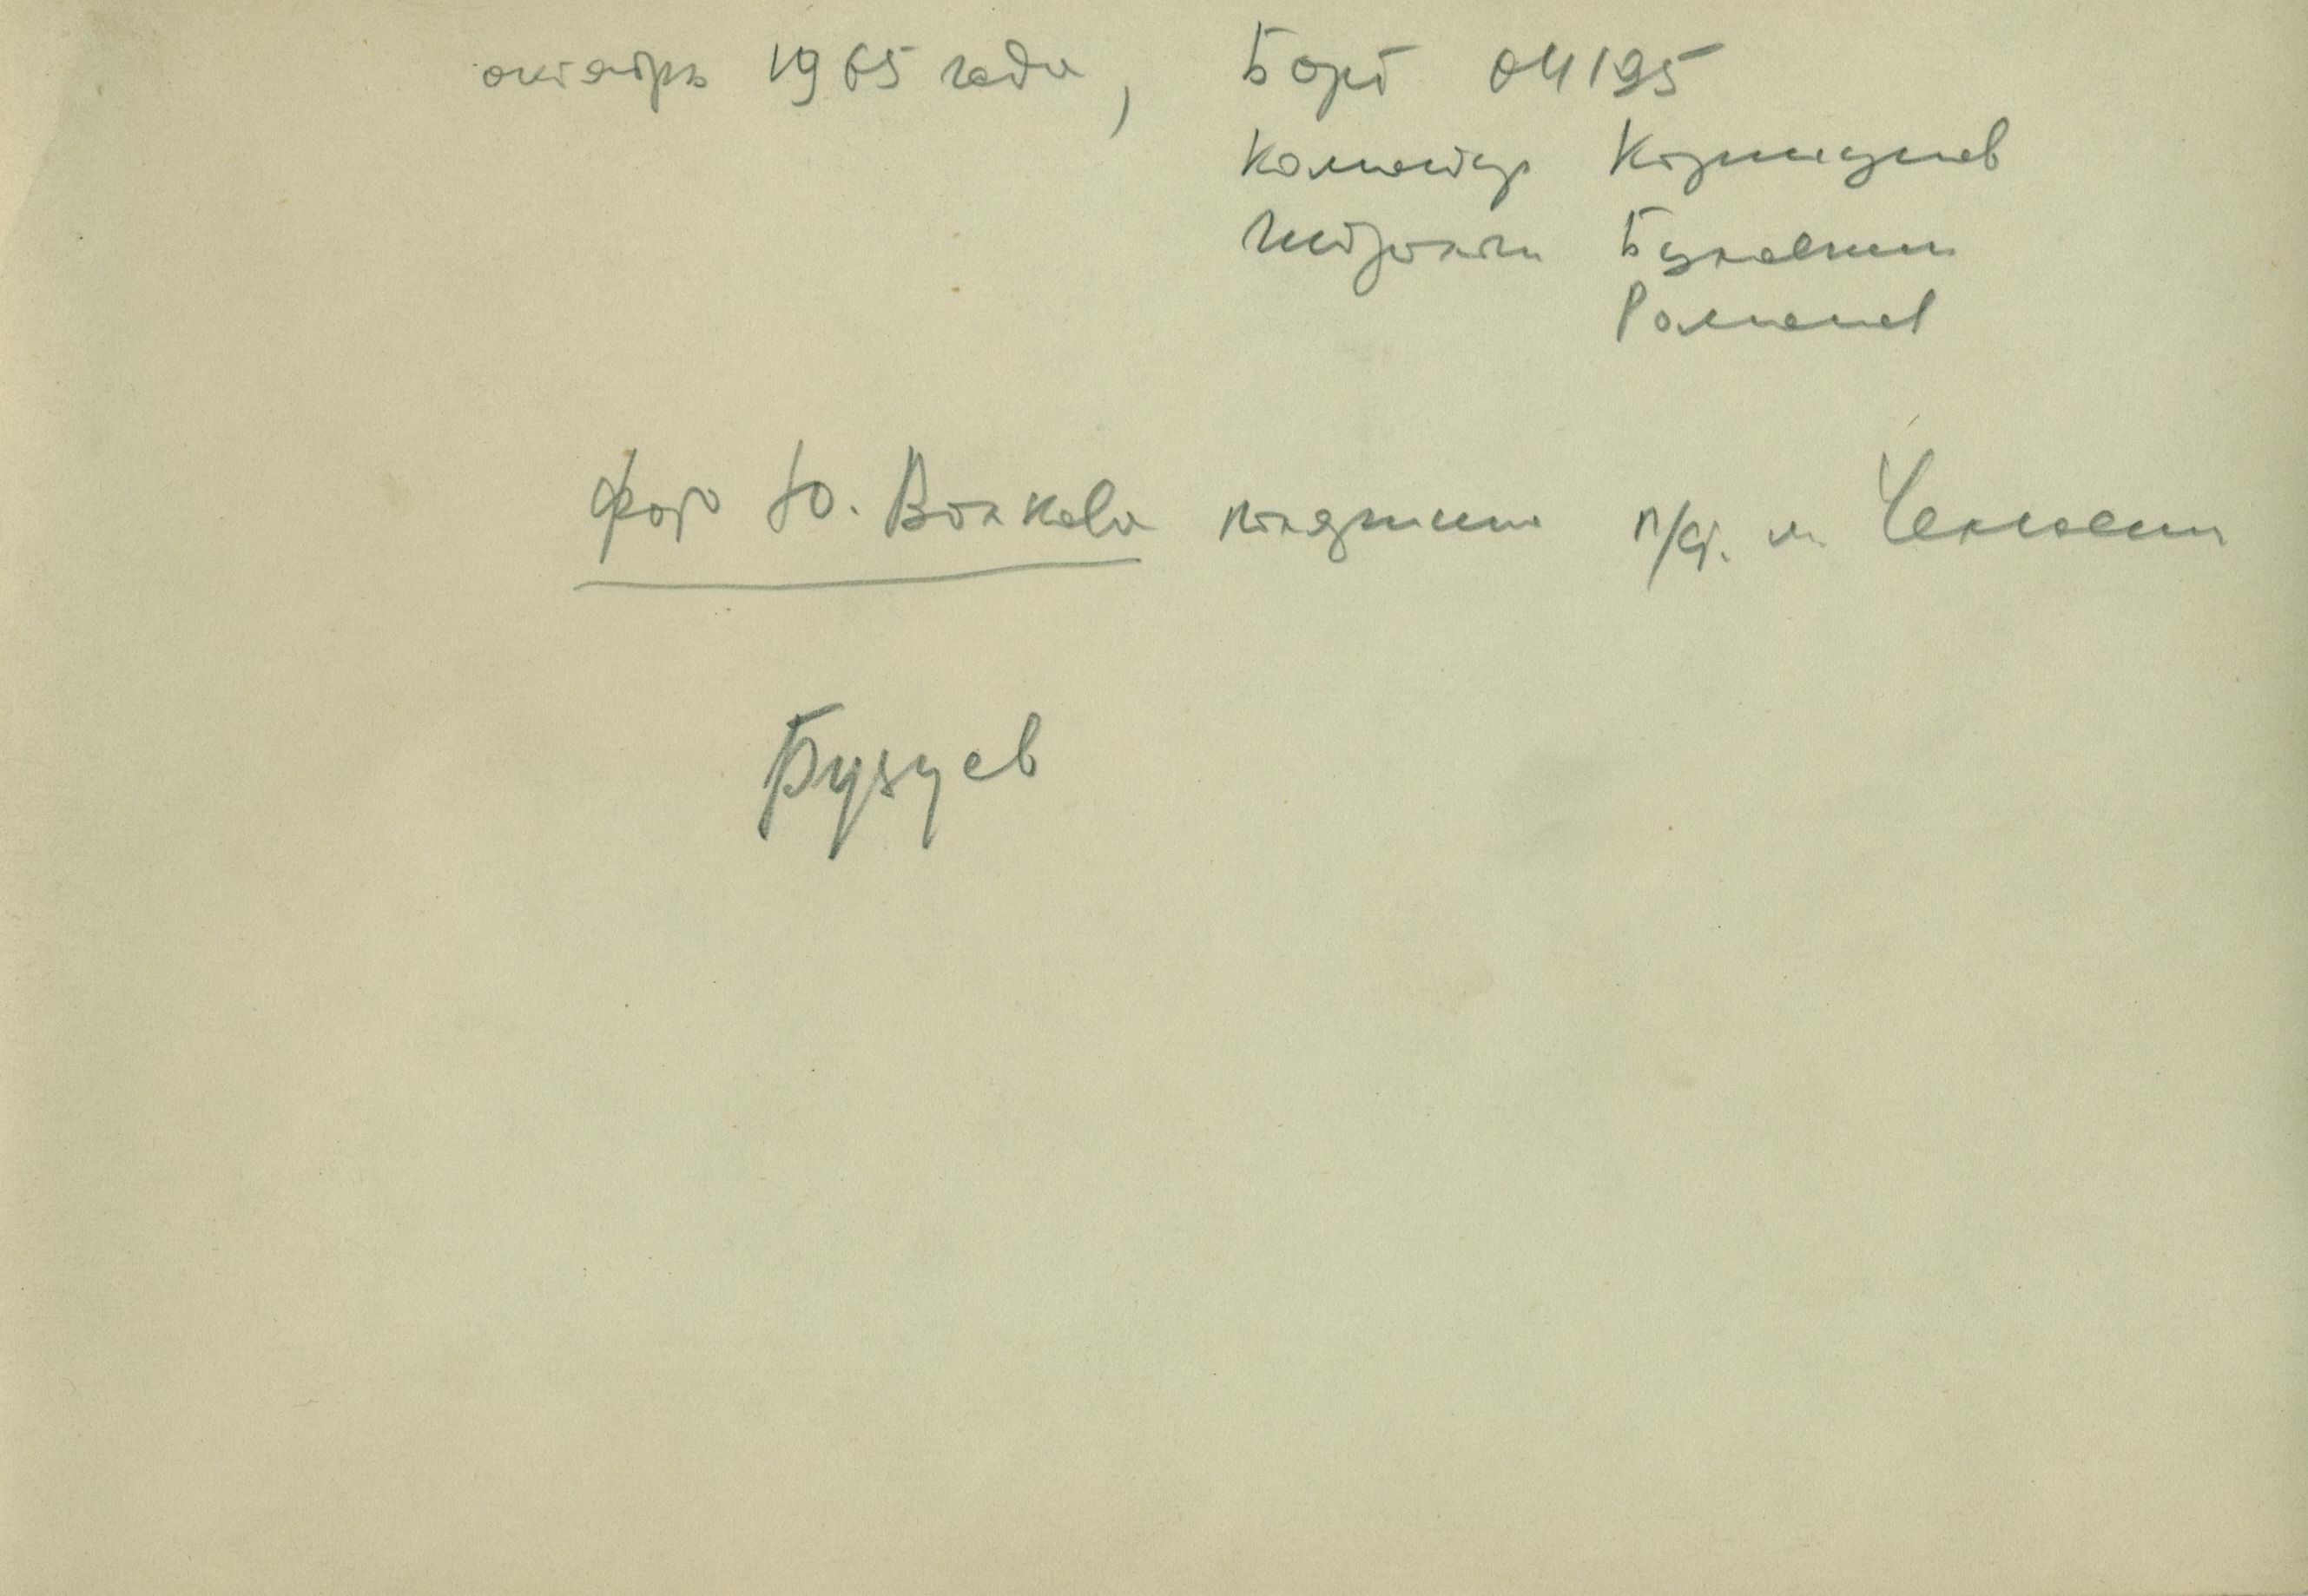 октябрь 1965 года, Борт 04195
Командир Коршунов
Гидрологи Буклешин
Романов
фото Ю. Волкова полярник п/ст. м. Челюскин
Бузуев